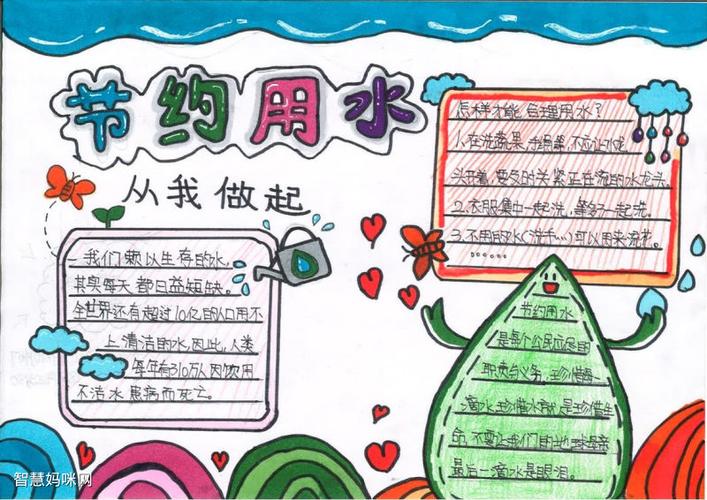 节约用水
从我做起
我们赖以生存的水,
其实每天都日益短缺。
全世界还有超过10亿的人口用不
上清洁的水,因此,人类
每年有310万人因饮用
不洁水患病而死亡。
怎样才能合理用水?
1.在洗蔬果、手绢等,不应让水龙
头开着,要及时关紧正在流的水龙头。
2.衣服集中一起洗,等多了一起洗。
3.不用的水(洗手…)可以用来浇花。
……
节约用水
是每个公民应尽的
职责与义务,珍惜每
滴水,珍惜水就是珍惜生
命,不要让我们的地球母亲
最后一滴水是眼泪。
智慧妈咪网